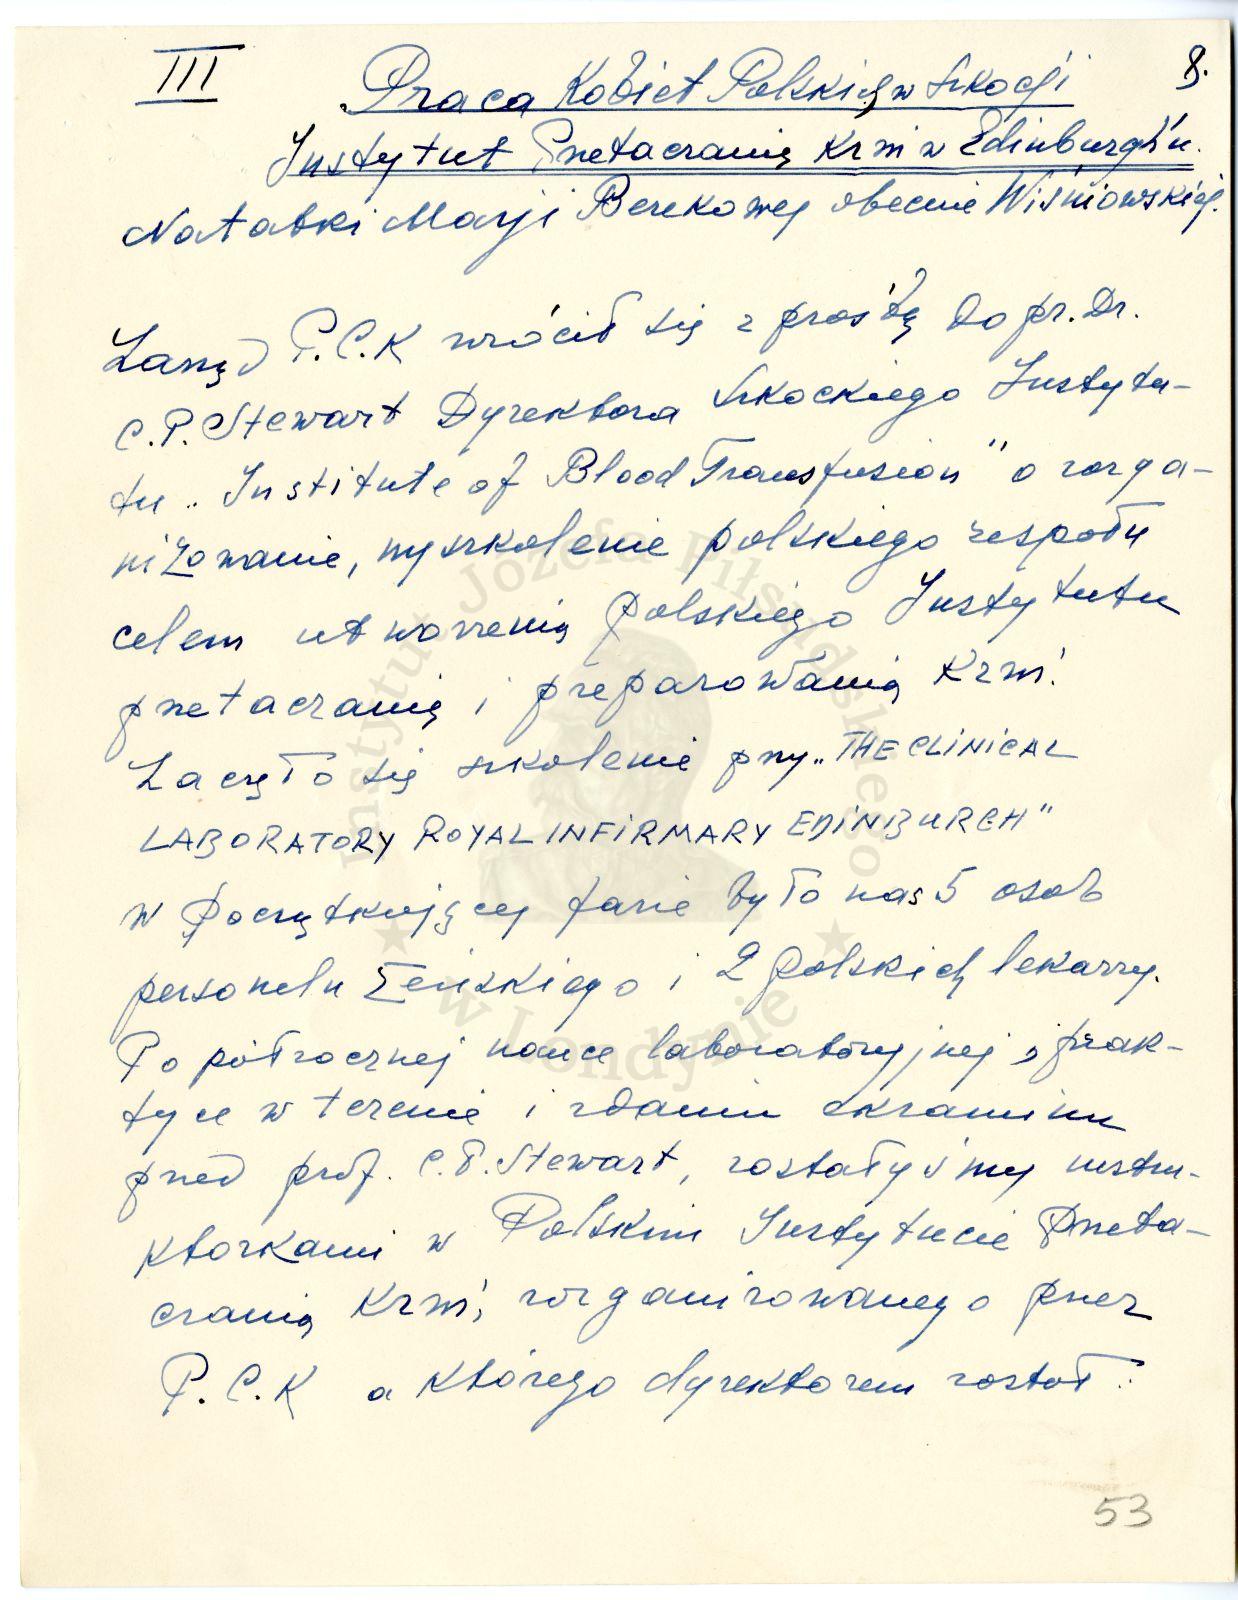 III
8.
Praca Kobiet Polskich w Szkocji
Instytut Przetaczania Krwi w Edinburgh'u.
Notatki Marji Berekowej obecnie Wiśniowskiej.
Zarząd P.C.K wrócił się z prośbą do pr. Dr.
C.P. Stewart Dyrektora Szkockiego Instytu-
tu „Institute of Blood Transfusion" o zorga-
nizowanie, wyszkolenie polskiego zespołu
celem utworzenia Polskiego Instytutu
przetaczania i preparowania Krwi.
Zaczęło się szkolenie przy „THE CLINICAL
LABORATORY ROYAL INFIRMARY EDINBURGH"
w Początkującej fazie było nas 5 osób
personelu żeńskiego i 2 polskich lekarzy.
Po półrocznej nauce laboratoryjnej, prak-
tyce w terenie i zdaniu ekzaminu
przed prof. C.P. Stewart, zostałyśmy instru-
ktorkami w Polskim Instytucie Przeta-
czania Krwi, zorganizowanego przez
P.C.K a którego dyrektorem został:
53
Instytut Józefa Piłsudskiego
w Londynie